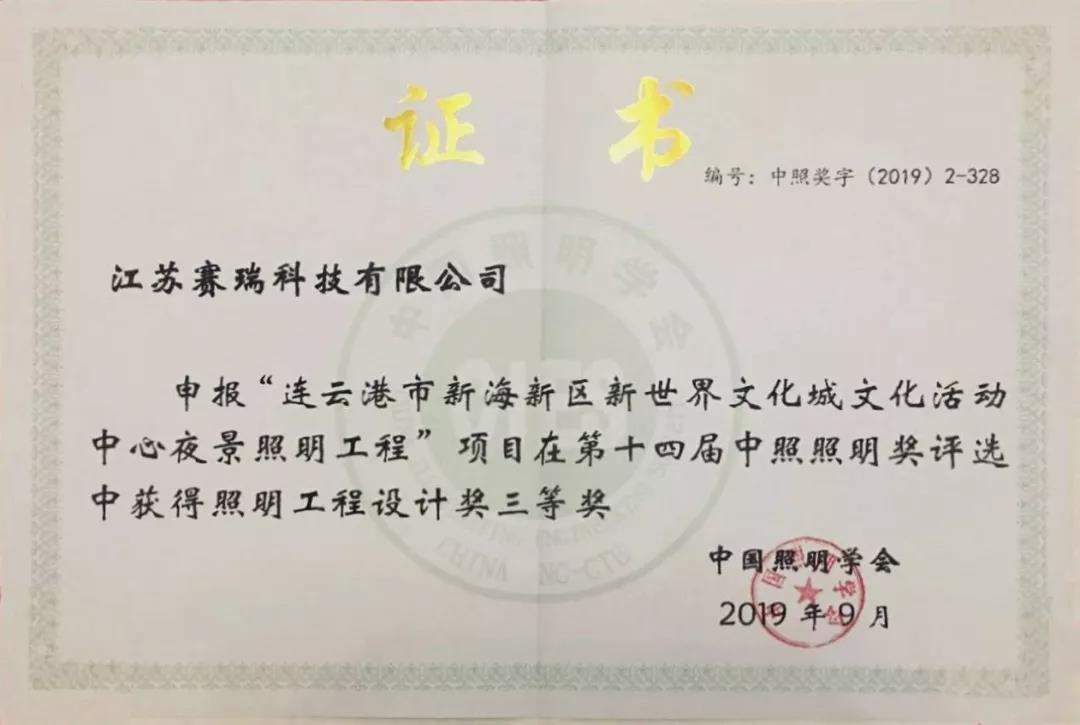 证书
编号：中照奖字（2019）2-328
江苏赛瑞科技有限公司
申报“连云港市新海新区新世界文化城文化活动
中心夜景照明工程”项目在第十四届中照照明奖评选
中获得照明工程设计奖三等奖
中国照明学会
2019年9月
中国照明学会
CIES